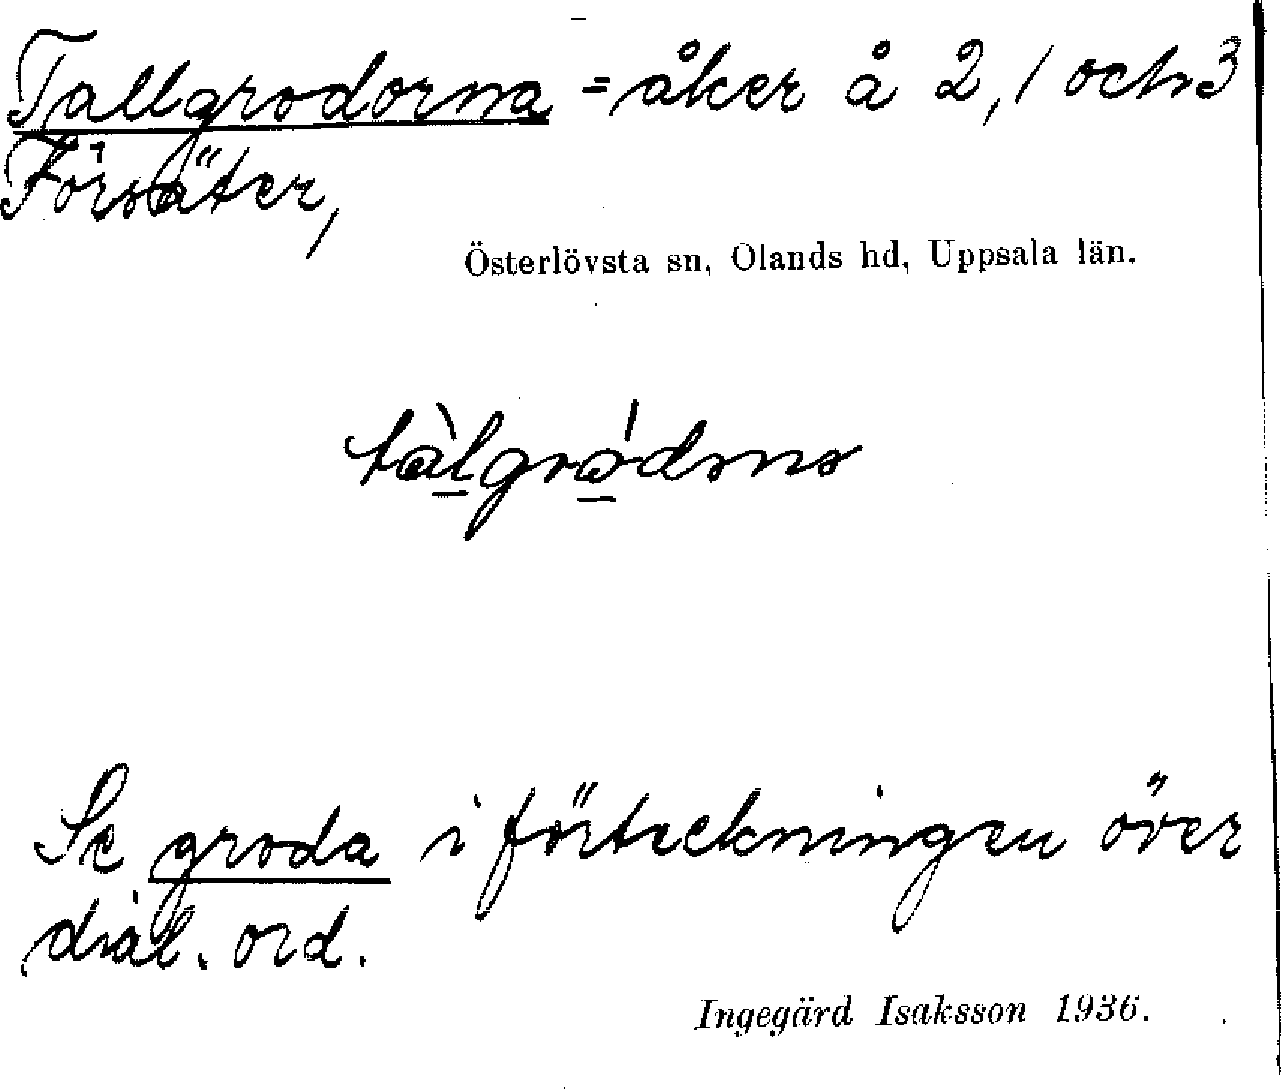 Tallgrodorna = åker å 2, 1 och 3
Försäter,
Österlövsta sn, Olands hd, Uppsala län.
tàlgrødɘnɘ
Se groda i förteckningen över
dial. ord.
Ingegärd Isaksson 1936.